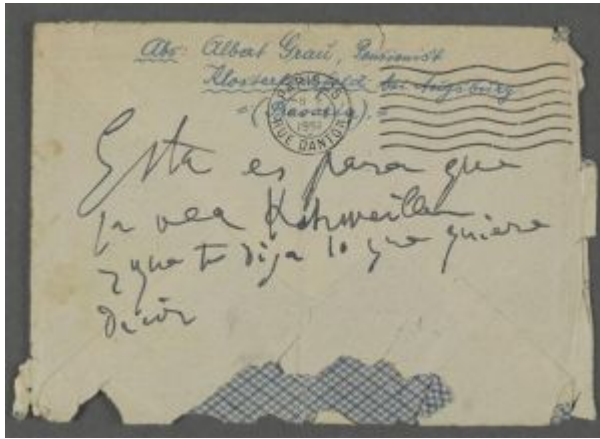 Abs: Albert Grau, Pensionist
Klosterlechfeld bei Augsburg
(Bavaria).
PARIS
RUE DANTON
Esta es para que
la vea Kahnweiler
y que te diga lo que quiere
decir